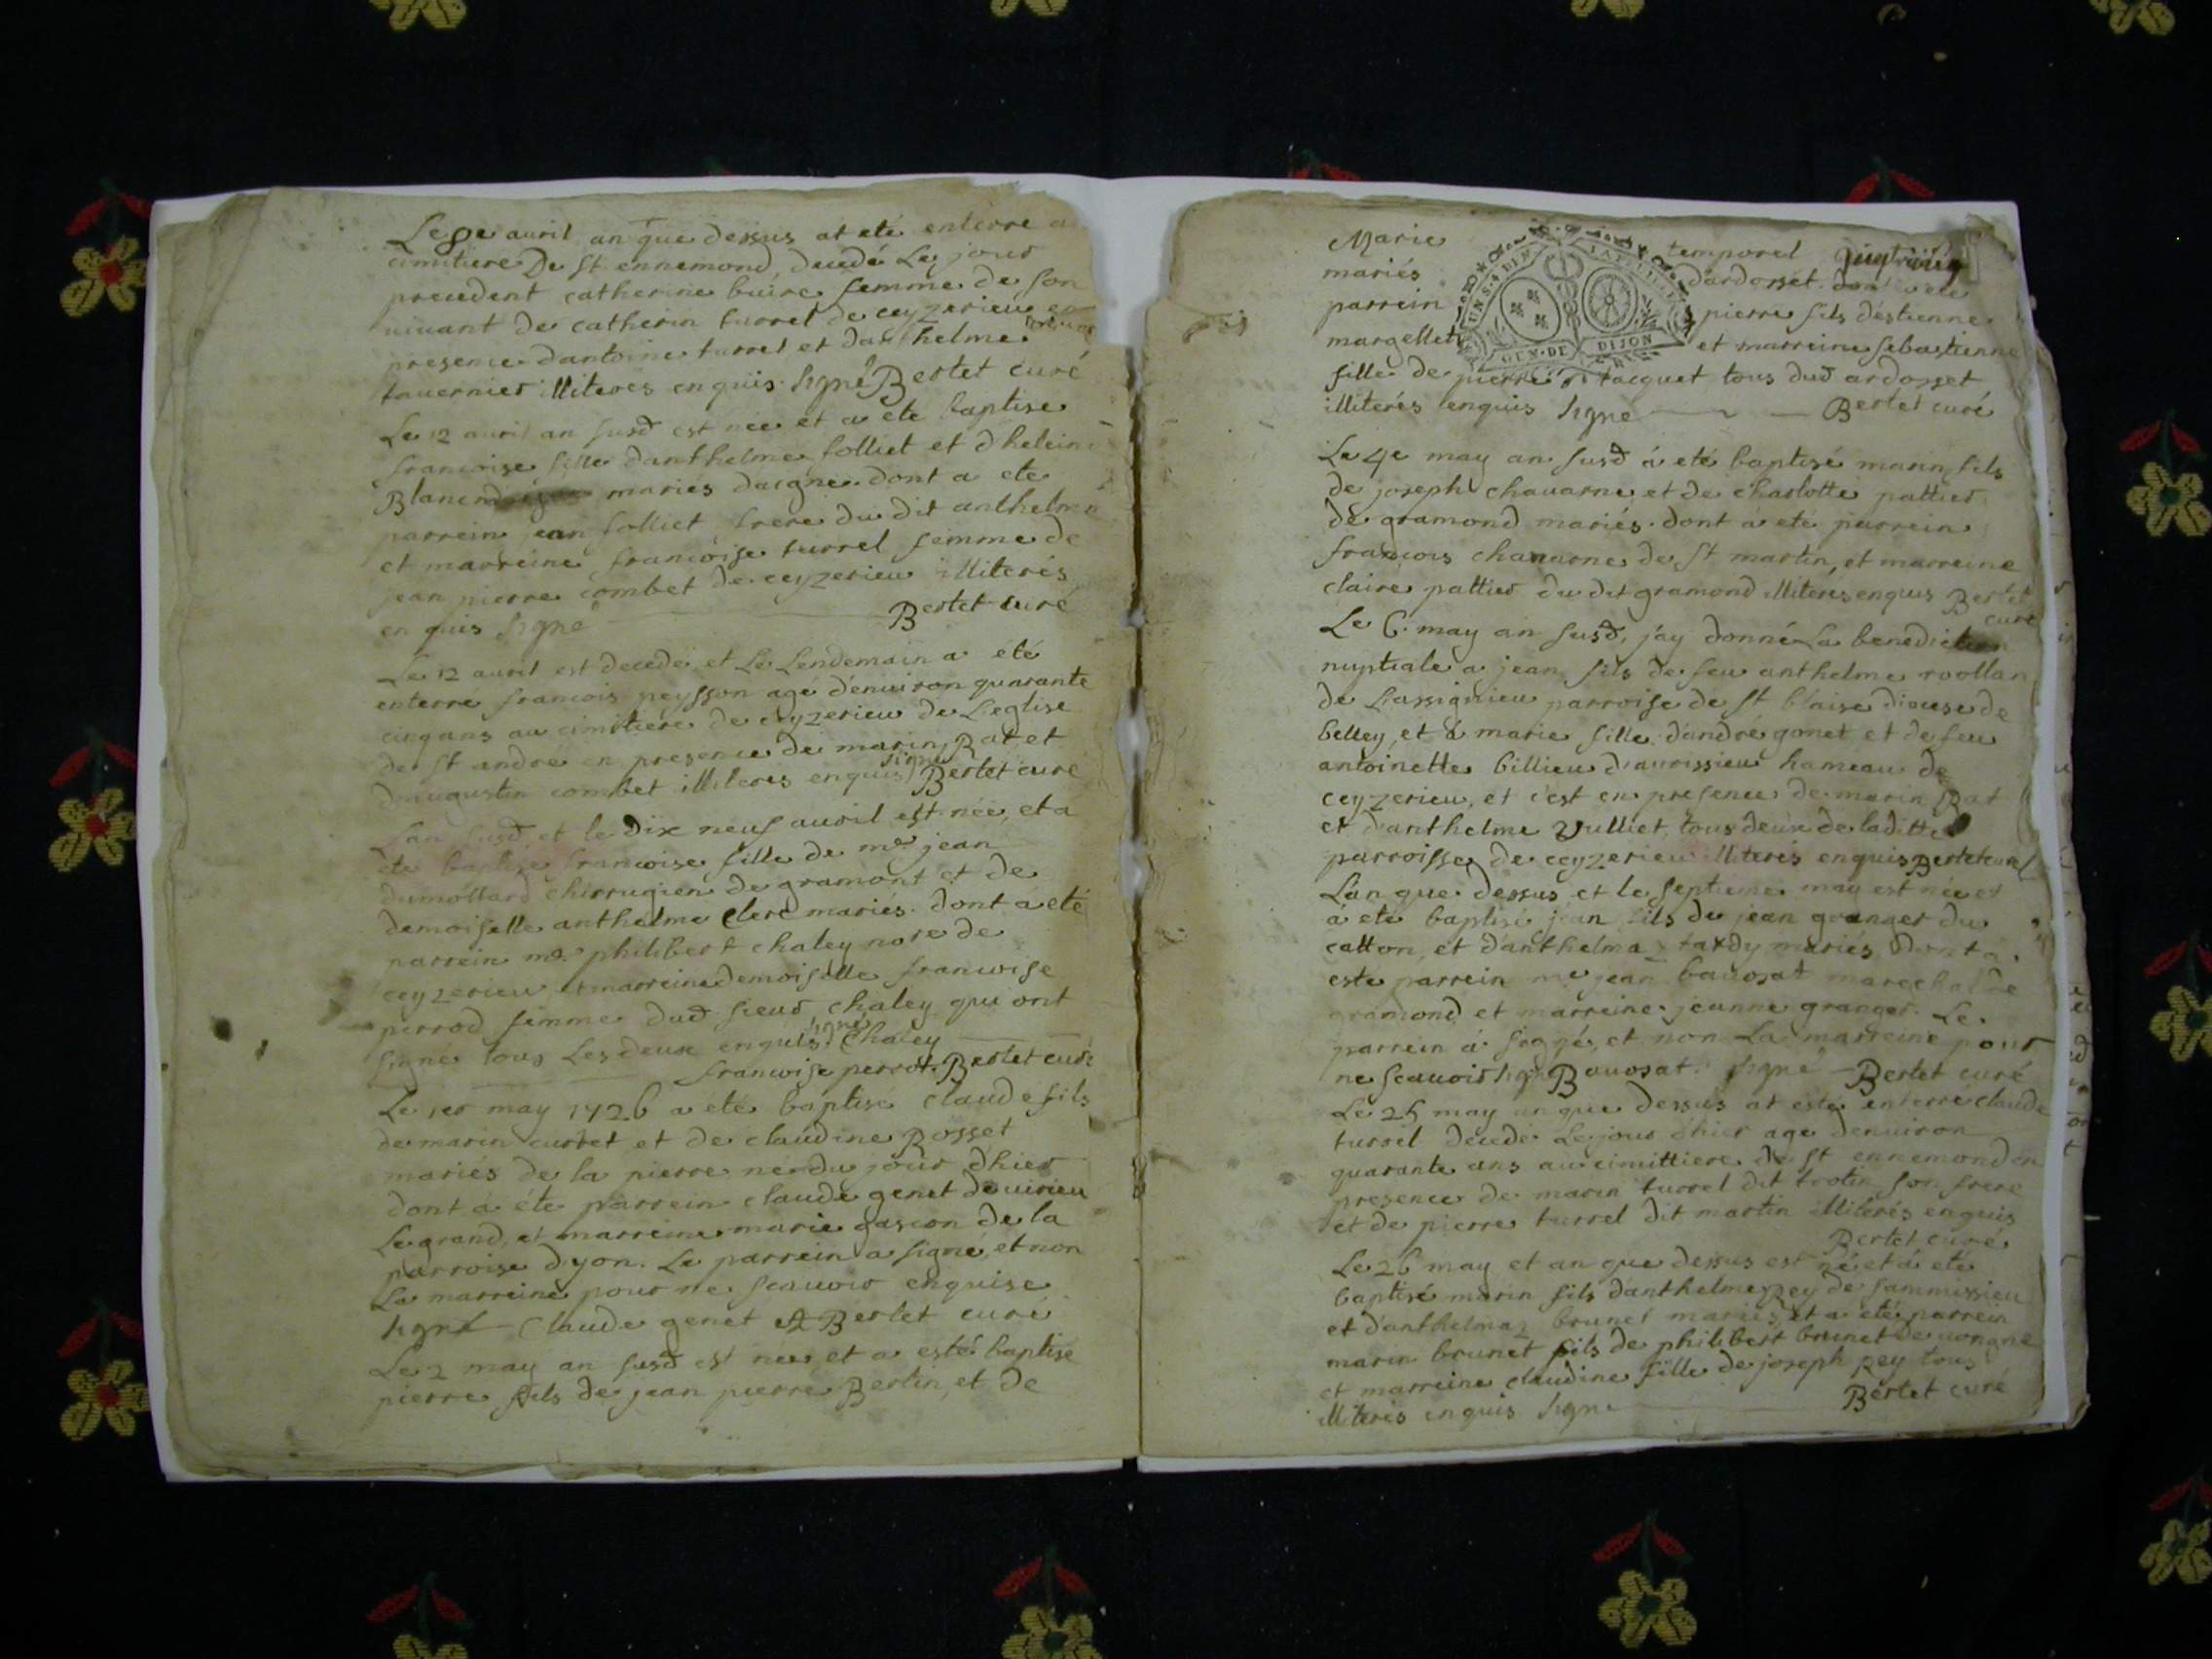 Le 8e auril an que dessus at eté enterré a
cimitiere De St ennemond, decedé Le jour
precedent catherine buire femme de son
uiuant de catherin turrel de ceyzerieu en
presence dantoine turrel et danthelme
tauernier illiterés enquis. signé Bertet curé
Le 12 auril an susd est née et a eté baptisé
francoise fille danthelme folliet et dheleine
Blanc mariés daigne. dont a eté
parrein jean folliet frere du dit anthelme
et marreine francoise turrel femme de
jean pierre combet de ceyzerieu illiterés
en quis signé Bertet curé
Le 12 auril est decedé et Le Lendemain a eté
enterré francois peysson agé denuiron quarante
cinq ans au cimitiere de ceyzerieu de L'eglise
de St andré en presence de marin Rat et
daugustin combet illiterés enquis signé Bertet curé
Lan susd et le Dix neuf auril est née, et a
eté baptisé francoise fille de me jean
dumollard chirrugien de gramont et de
demoiselle anthelme Clerc mariés. dont a eté
parrein me philibert chaley nore de
ceyzerieu, et marreine demoiselle francoise
perrod femme dud sieur chaley qui ont
signé tous Les deux enquis. signé Chaley
francoise perrot. Bertet curé
Le 1er may 1726 a eté baptisé claude fils
de marin curtet et de claudine Rosset
mariés de la pierre né du jour dhier
dont a eté parrein claude genet de uirieu
Le grand, et marreine marie gascon de la
parroise dyon. Le parrein a signé, et non
La marreine pour ne scauoir enquise
signé Claude genet et Bertet curé
Le 2 may an susd est né, et a esté baptisé
pierre fils de jean pierre Bertin, et de
Marie temporel
mariés d'ardosset. dont a eté
parrein pierre fils d'estienne
margellet et marreine sebastienne
GEN · DE DIJON
fille de pierre tacquet tous dud ardosset
illiterés enquis signé Bertet curé
Le 4e may an susd á eté baptisé marin fils
de joseph chauarne et de charlotte pattier
de gramond mariés. dont á eté parrein
francois chauarne de St martin, et marreine
claire pattier du dit gramond illiterés enquis Bertet
curé
Le 6. may an susd, j'ay donné La benediction
nuptiale a jean fils de feu anthelme roollan
de Lassignieu parroise de St blaise diocese de
belley, et á marie fille d'andré gonet et de feu
antoinette billieu d'aurissieu hameau de
ceyzerieu, et c'est en presence de marin Rat
et d'anthelme Vulliet, tous deux de laditte
parroisse de ceyzerieu illiterés enquis Bertet curé
L'an que dessus et le septieme may est né et
a eté baptisé jean fils de jean granger du
catton, et d'anthelmaz tardy mariés Dont a
esté parrein me jean bauosat marechal de
gramond et marreine jeanne granger. Le
parrein á signé, et non La marreine pour
ne scauoir signé Bauosat. signé Bertet curé
Le 25 may an que dessus at esté enterré claude
turrel decedé Le jour d'hier agé denuiron
quarante ans au cimittiere de St ennemond en
presence de marin turrel dit trotin son frere
et de pierre turrel dit martin illiterés enquis
Bertet curé
Le 26 may et an que dessus est né et á eté
baptisé marin fils d'anthelme pey de sammissieu
et d'anthelmaz brunet mariés, et a eté parrein
marin brunet fils de philibert brunet de uongne
et marreine claudine fille de joseph pey tous
illiterés enquis signé Bertet curé